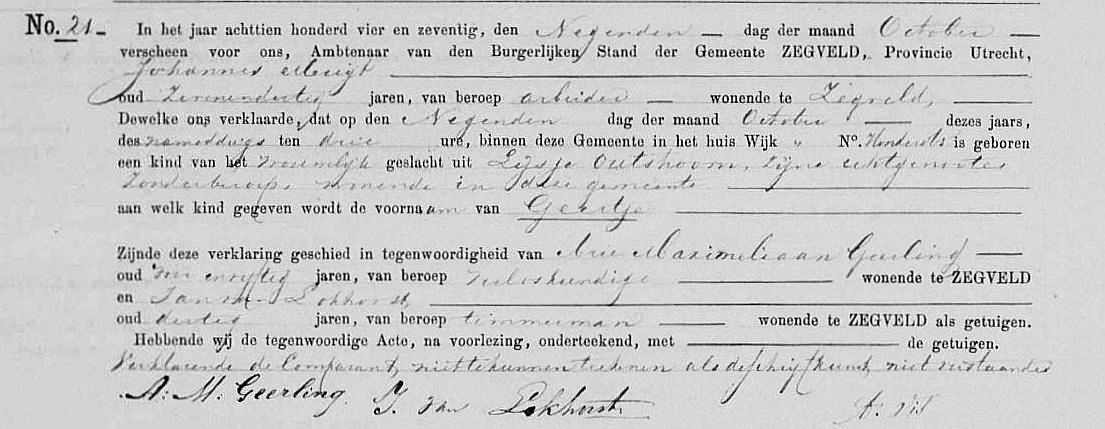 No. 21.- In het jaar achttien honderd vier en zeventig, den Negenden — dag der maand October —
verscheen voor ons, Ambtenaar van den Burgerlijken Stand der Gemeente ZEGVELD, Provincie Utrecht,
Johannes
oud Zevenendertig jaren, van beroep arbeider — wonende te Zegveld,
Dewelke ons verklaarde, dat op den Negenden dag der maand October — dezes jaars,
des namiddags ten drie ure, binnen deze Gemeente in het huis Wijk " No. Honderdts is geboren
een kind van het vrouwelijk geslacht uit Lijsje Outshoorn, zijne echtgenoote
Zonder beroep, wonende in deze gemeente
aan welk kind gegeven wordt de voornaam van Geertje
Zijnde deze verklaring geschied in tegenwoordigheid van Arie Maximeliaan Geerling —
oud en vijftig jaren, van beroep verloskundige — wonende te ZEGVELD
en Jan van Lokhorst
oud dertig jaren, van beroep timmerman — wonende te ZEGVELD als getuigen.
Hebbende wij de tegenwoordige Acte, na voorlezing, onderteekend, met — de getuigen.
Verklarende de Comparant niet te kunnen teekenen als de schrijfkunst niet verstaande
A. M. Geerling. J. van Lokhorst